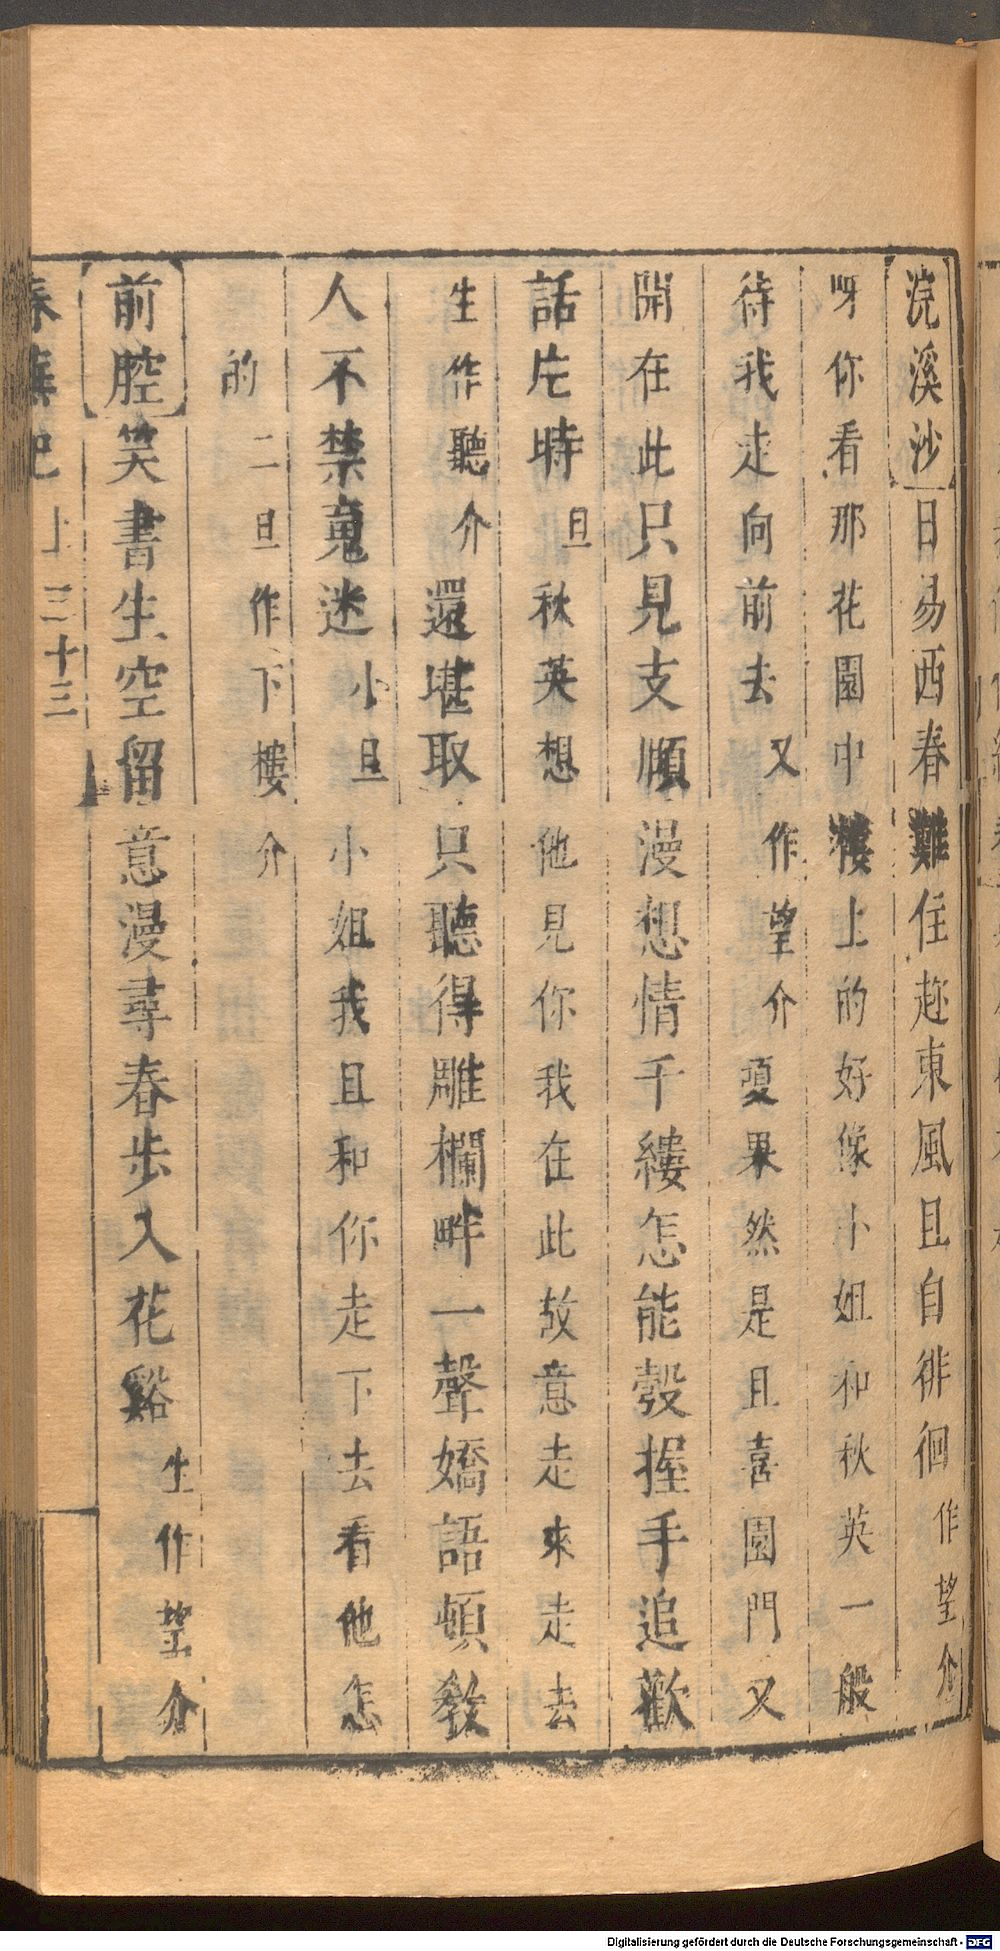 浣溪沙日易西春難住趂東風且自徘徊作望介
呀你看那花園中樓上的好像小姐和秋英一般
待我走向前去又作望介敻果然是且喜園門又
開在此只見支順漫想情千縷怎能彀握手追歡
話片時旦秋英想他見你我在此故意走來走去
生作聽介還堪取只聽得雕欄畔一聲嬌語頓教
人不禁䰟迷小旦小姐我且和你走下去看他怎
的二旦作下樓介
前腔笑書生空留意漫尋春步入花谿生作望介
春蕪記上三十三
Digitalisierung gefördert durch die Deutsche Forschungsgemeinschaft - DFG